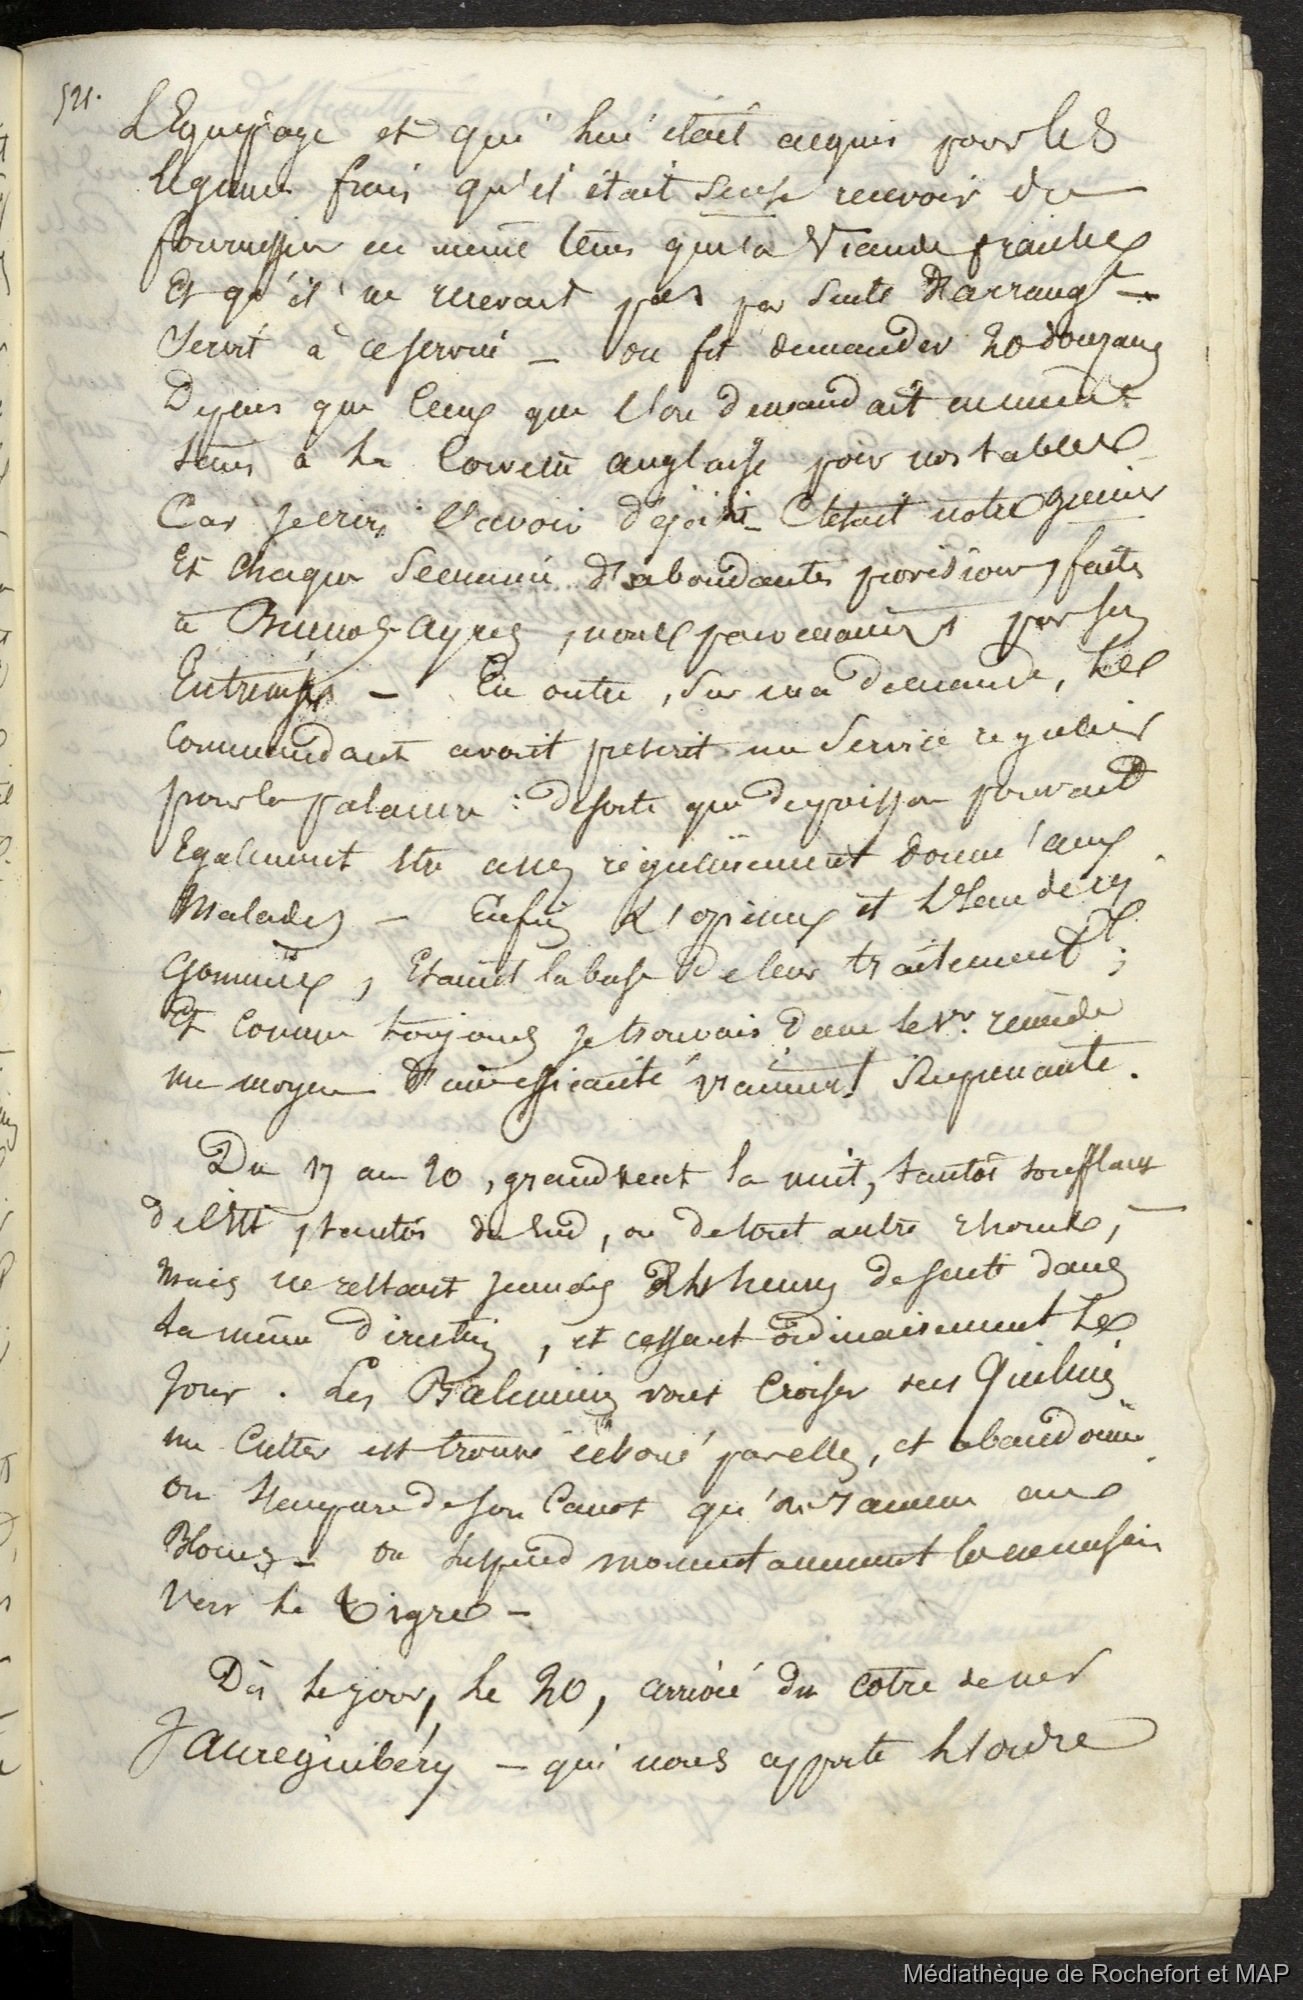 521.
L'Equipage et qui lui était acquis pour les
legumes frais qu'il était sensé recevoir du
fournisseur en même tems que la Viande fraiche
Et qu'il ne recevait pas par suite d'arrangt
à ce servi — on fit demander 20 douzaines
que ceux que l'on demandait en même
tems à la Corvette anglaise pour nos tables
Car je crois l'avoir déjà dit C'était notre grenier
Et chaque Semaine d'abondantes provisions, faites
à Buenos-Ayres, nous parvenaient par son
Entremise — En outre, sur ma demande, le
Commandant avait prescrit un Service regulier
pour la palancre : desorte que du poisson pouvait
Egalement être assez régulièrement donné aux
Malades — Enfin L'opium et l'Eau de riz
Gommée, Etaient la base de leur traitement;
Et comme toujours je trouvais dans le 1er. remède
un moyen d'une efficacité vraiment surprenante.
Du 17 au 20, grand vent la nuit, tantôt soufflant
de l'Est, tantôt du Sud, ou de tout autre rhomb,
mais ne restant jamais 24 heures de suite dans
la même direction, et cessant ordinairement le
jour. Les Baleinières vont croiser vers Quilmès
un Cutter est trouvé échoué par elles, et abandonné.
on s'empare de son Canot qu'on ramene au
Blocus — On suspend momentanément la
Vers le Tigre —
Dès le jour, le 20, arrivée du cotre de mer
Jaureguibéry — qui nous apporte l'ordre
Médiathèque de Rochefort et MAP